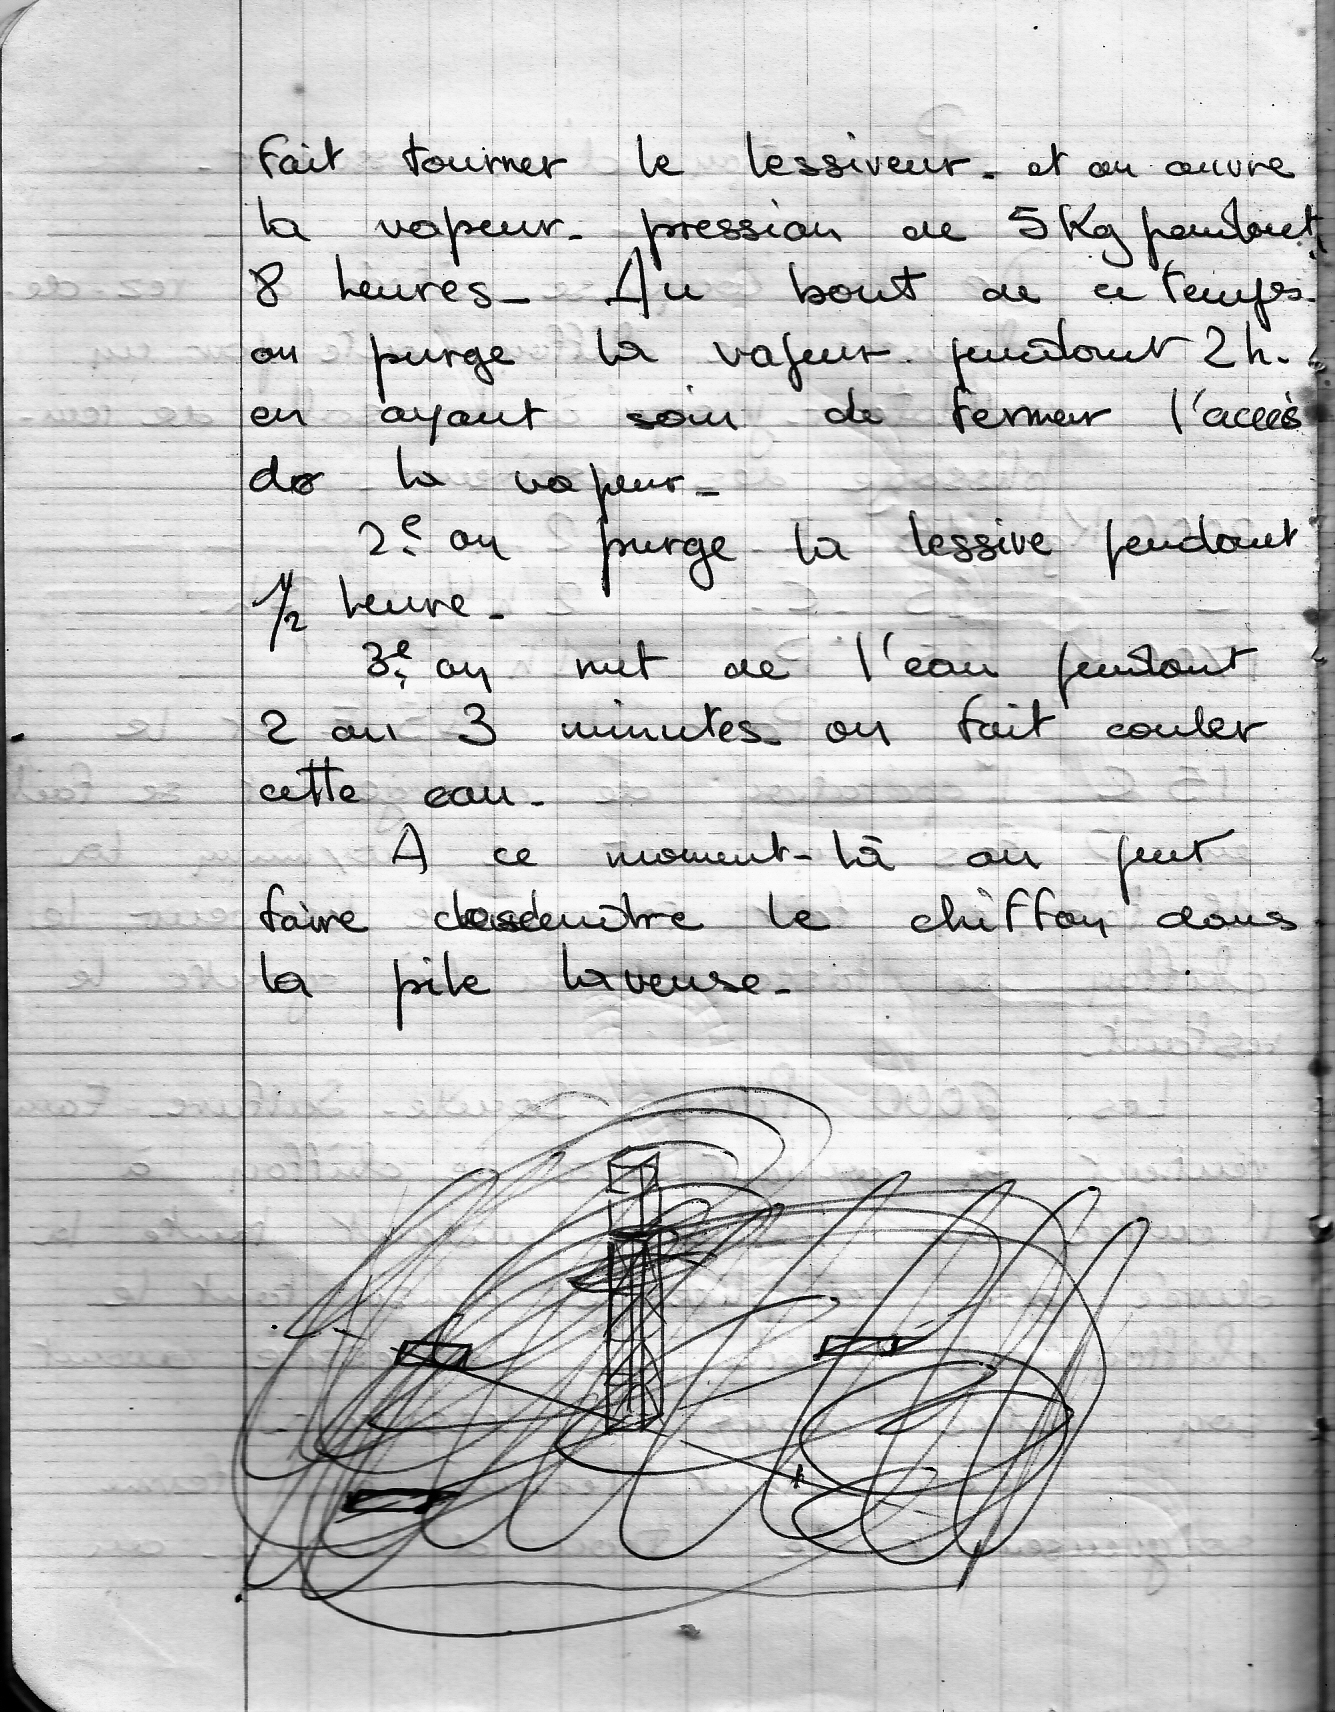 fait tourner le lessiveur. et on ouvre
la vapeur. pression de 5 Kg pendant
8 heures. Au bout de ce temps.
on purge la vapeur. pendant 2 h.
en ayant soin de fermer l'accès
de la vapeur.
2e. on purge la lessive pendant
1/2 heure.
3e. on met de l'eau pendant
2 ou 3 minutes. on fait couler
cette eau.
A ce moment-là on peut
faire descendre le chiffon dans
la pile laveuse.